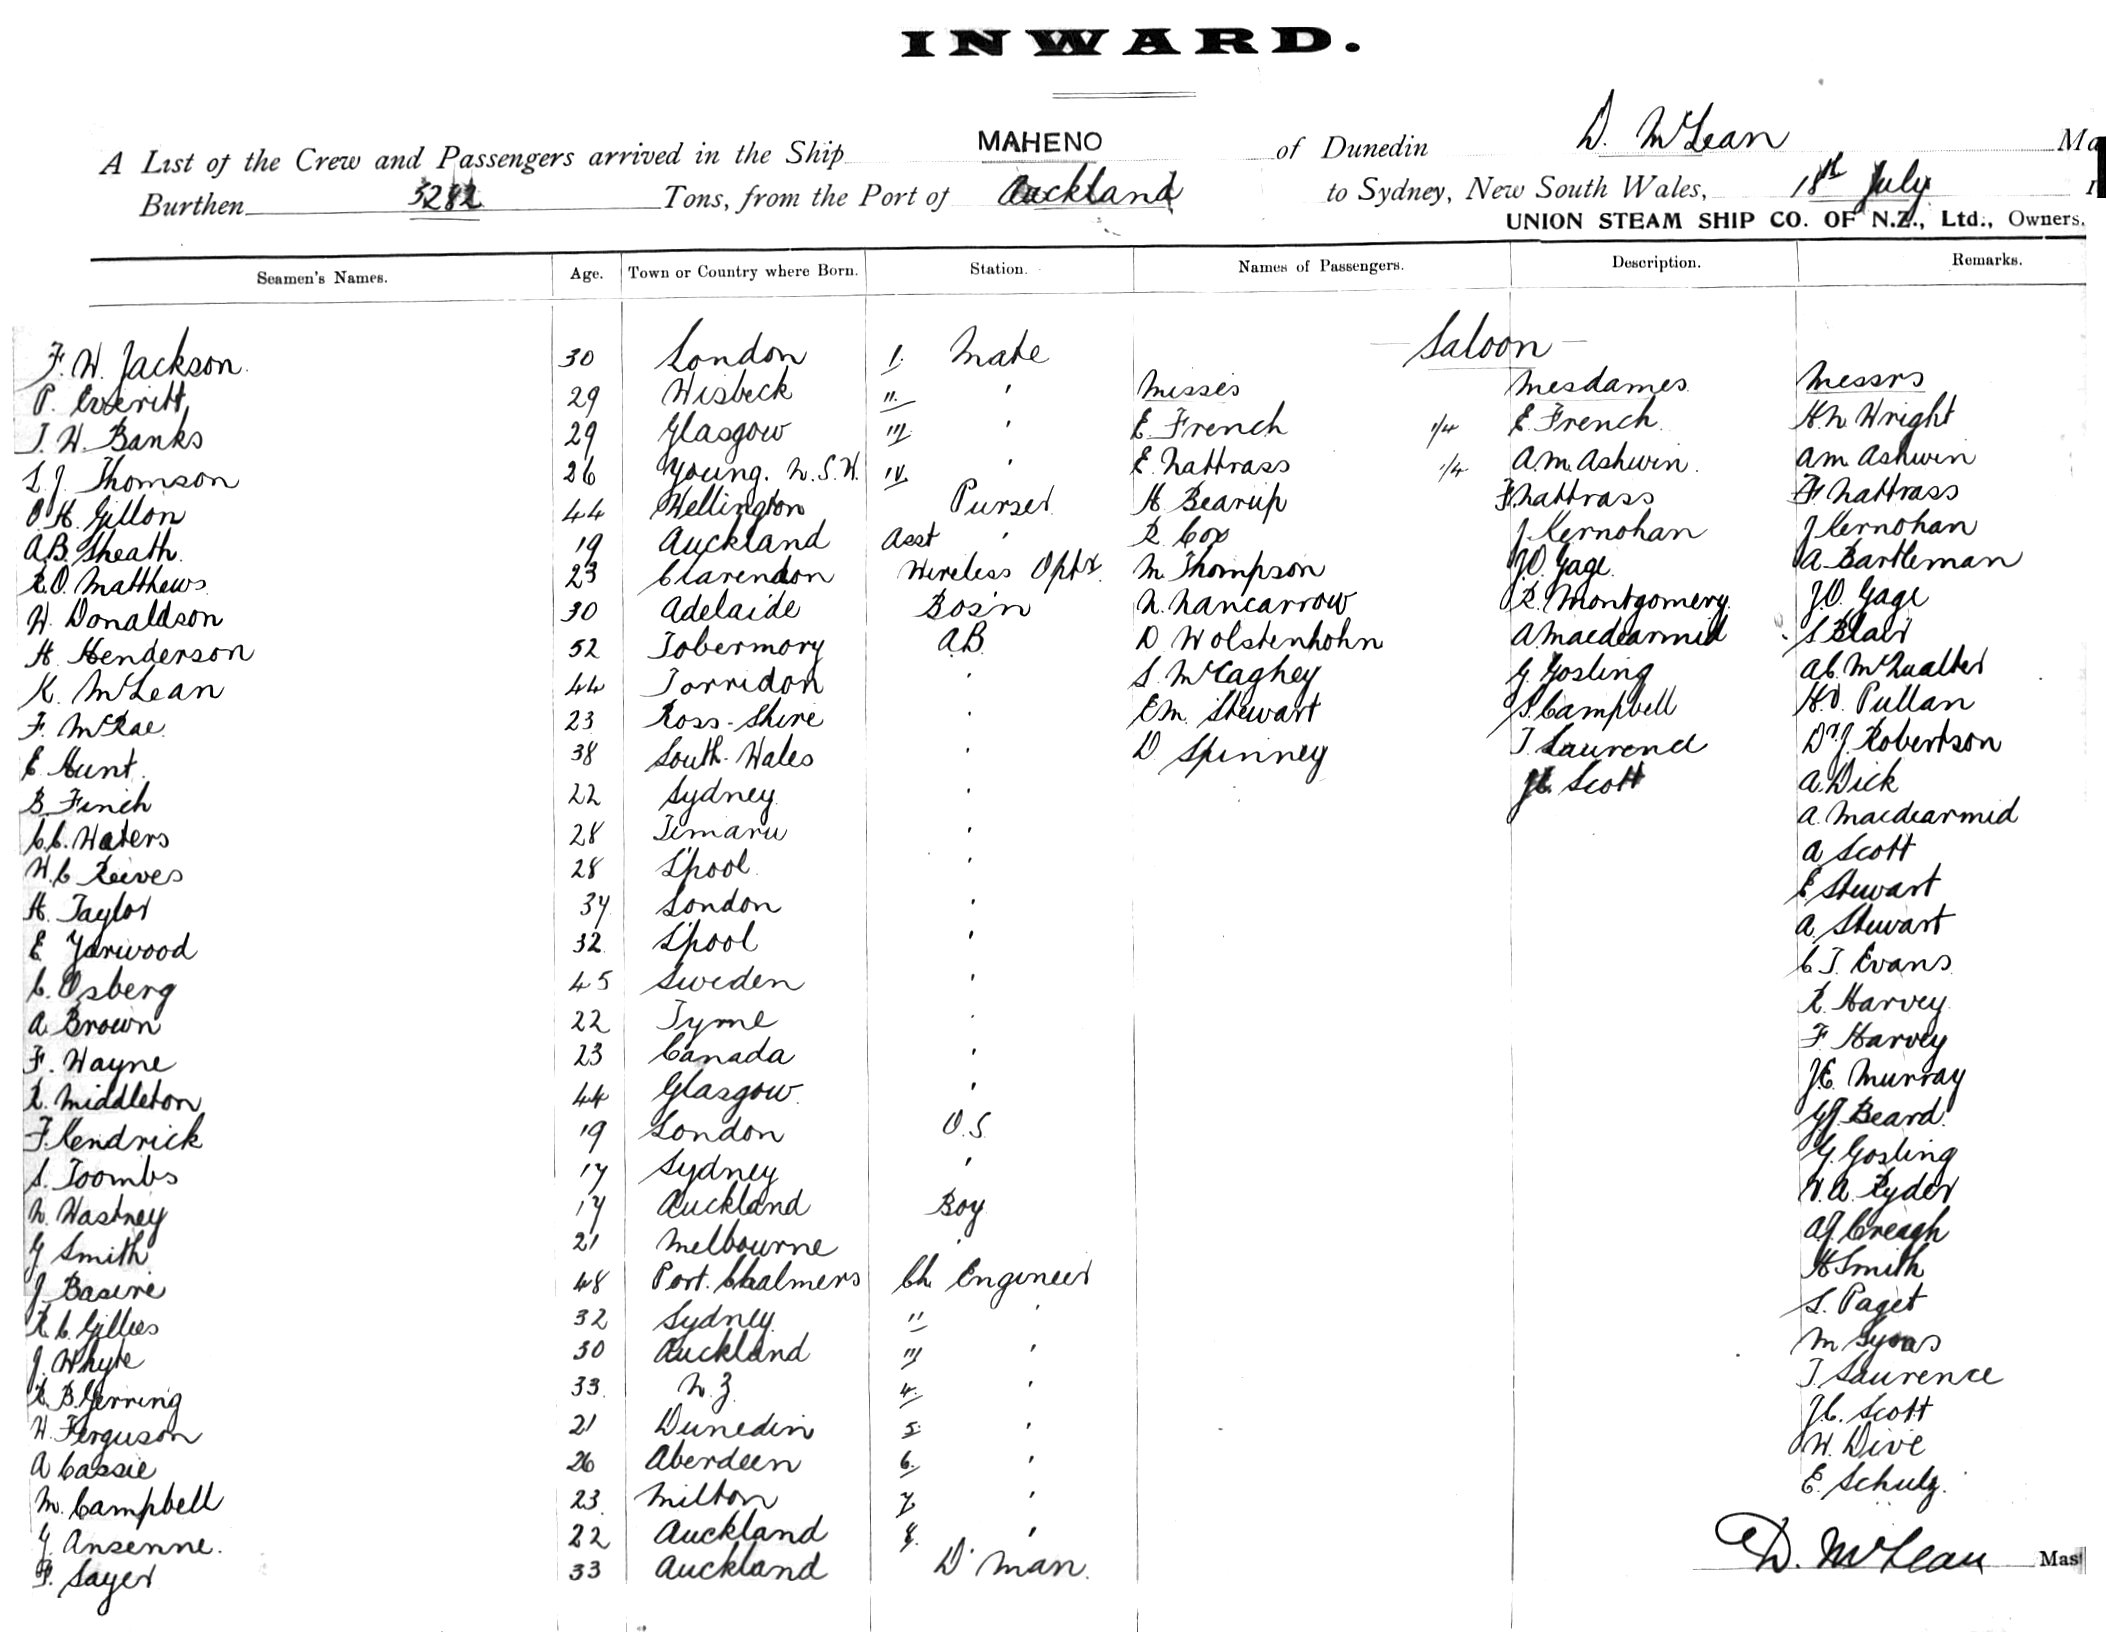 INWARD.
A List of the Crew and Passengers arrived in the Ship MAHENO of Dunedin D. McLean Ma
Burthen 5282 Tons, from the Port of Auckland to Sydney, New South Wales, 18th July 1
UNION STEAM SHIP CO. OF N.Z., Ltd., Owners.
Seamen's Names. Age. Town or Country where Born. Station. Names of Passengers. Description. Remarks.
— Saloon —
F. W. Jackson. 30 London I. Mate
P. Everitt 29 Wisbeck II. ' Misses Mesdames Messrs
T. W. Banks 29 Glasgow III ' E. French 1/4 E French H.N. Wright
L. J. Thomson 26 Young. N.S.W. IV ' E. Nattrass 1/4 A.M. Ashwin. A M Ashwin
O. H. Gillon 44 Wellington Purser H. Bearup F. Nattrass F. Nattrass
A.B. Sheath. 19 Auckland Asst ' R. Cox J Kernohan J Kernohan
R.O. Matthews 23 Clarendon Wireless Optr. M. Thompson J.O. Gage. A Bartleman
W. Donaldson 30 Adelaide Bos'n N. Nancarrow R. Montgomery J.O. Gage
H. Henderson 52 Tobermory A.B. D Wolstenhohn A. Macdearmid S Blair
K. McLean 44 Torridon ' S. McCaghey G. Gosling A.C. McQualter
F. McRae. 23 Ross-Shire ' E M. Stewart S. Campbell H.O. Pullan
E Hunt. 38 South-Wales ' D Spinney T. Laurence Dr J. Robertson
B. Finch 22 Sydney ' J.C. Scott A. Dick
C.C. Waters 28 Timaru ' A. Macdearmid
W.C Reeves 28 L'pool ' A Scott
H. Taylor 37 London ' E Stewart
E Yarwood 32 L'pool ' A. Stewart
C. Osberg 45 Sweden ' C T. Evans
A Brown 22 Tyme ' R. Harvey
F. Wayne 23 Canada ' F Harvey
R. Middleton 44 Glasgow. ' J.E. Murray
F. Kendrick 19 London O.S. G J Beard.
S. Toombs 17 Sydney ' G. Gosling
N. Wastney 17 Auckland Boy A. Ryder
G Smith 21 Melbourne ' A.J. Creagh
J Basire 48 Port. Chalmers Ch Engineer H Smith
R.C. Gillies 32 Sydney II ' L. Paget
J. Whyte 30 Auckland III ' M Lyons
R. B. Gerring 33. N.Z 4. ' T. Laurence
W. Ferguson 21 Dunedin 5. ' J.C. Scott
A Cassie 26 Aberdeen 6. ' W. Dive
M. Campbell 23. Milton 7. ' E. Schulz.
G. Ansenne. 22 Auckland 8. '
F. Sayer 33 Auckland D'Man.
D. McLean Mas